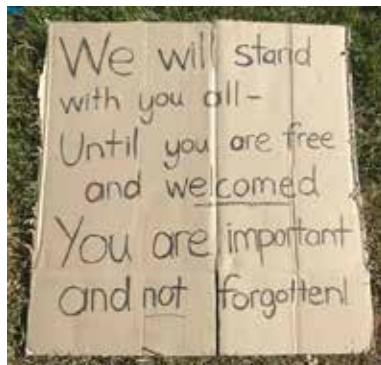 We will stand
with you all-
Until you are free
and welcomed
You are important
and not forgotten!